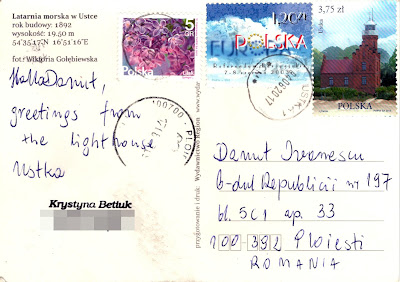 Latarnia morska w Ustce
rok budowy: 1892
wysokość: 19.50 m
54°35'17"N 16°51'16"E
fot. Wiktoria Gołębiewska
5
GR
Polska
1,20 zł
POLSKA
3,75 zł
Ustka
POLSKA
Hallo Danut,
greetings from
the lighthouse
Ustka
Krystyna Betiuk
przygotowanie i druk: Wydawnictwo Region
Danut Ivanescu
b-dul Republicii nr 197
bl. 5C1 ap. 33
100-392 Ploiesti
ROMANIA